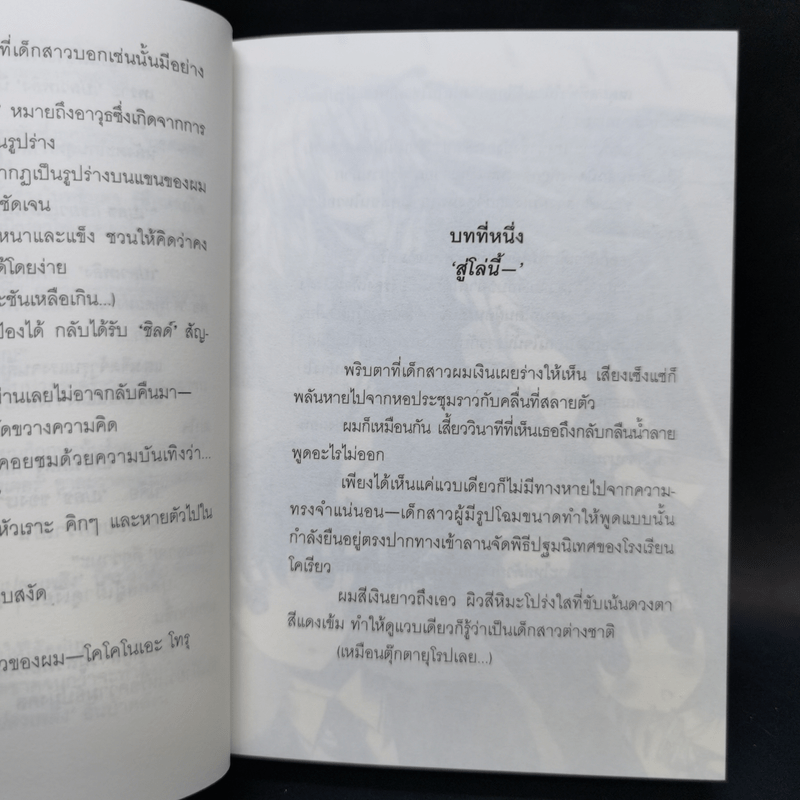 ที่เด็กสาวบอกเช่นนั้นมีอย่าง
หมายถึงอาวุธซึ่งเกิดจากการ
นรูปร่าง
ากฏเป็นรูปร่างบนแขนของผม
ชัดเจน
หนาและแข็ง ชวนให้คิดว่าคง
ด้โดยง่าย
ะชันเหลือเกิน...)
ป้องได้ กลับได้รับ ‘ชิลด์’ สัญ-
่านเลยไม่อาจกลับคืนมา—
ัดขวางความคิด
คอยชมด้วยความบันเทิงว่า...
หัวเราะ คิกๆ และหายตัวไปใน
บสงัด
วของผม—โคโคโนเอะ โทรุ
บทที่หนึ่ง
‘สู่โล่นี้—’
พริบตาที่เด็กสาวผมเงินเผยร่างให้เห็น เสียงเซ็งแซ่ก็
พลันหายไปจากหอประชุมราวกับคลื่นที่สลายตัว
ผมก็เหมือนกัน เสี้ยววินาทีที่เห็นเธอถึงกลับกลืนน้ำลาย
พูดอะไรไม่ออก
เพียงได้เห็นแค่แวบเดียวก็ไม่มีทางหายไปจากความ-
ทรงจำแน่นอน—เด็กสาวผู้มีรูปโฉมขนาดทำให้พูดแบบนั้น
กำลังยืนอยู่ตรงปากทางเข้าลานจัดพิธีปฐมนิเทศของโรงเรียน
โคเรียว
ผมสีเงินยาวถึงเอว ผิวสีหิมะโปร่งใสที่ขับเน้นดวงตา
สีแดงเข้ม ทำให้ดูแวบเดียวก็รู้ว่าเป็นเด็กสาวต่างชาติ
(เหมือนตุ๊กตายุโรปเลย...)